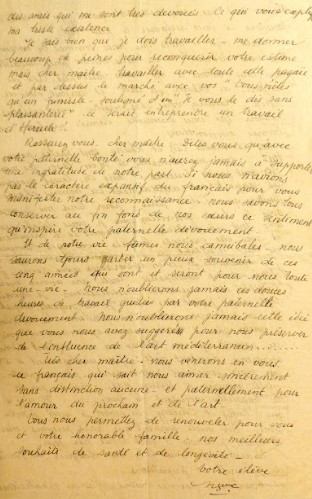 des amis qui me sont très dévoués. Ce qui vous expliq
ma triste existence.
Je sais bien que je dois travailler - me donner
beaucoup de peines pour reconquérir votre estime
mais cher maître, travailler avec toute cette pagaie
et par dessus le marché avec vos
qu'un fumiste souligne d'un "Je vous le dis sans
plaisanterie" ce serait entreprendre un travail
d'Hercule!
Rassurez vous, cher maître. Dites vous qu'avec
votre paternelle bonté vous n'aurez jamais à supporter
une ingratitude de notre part. Si nous n'avons
pas le caractère expansif du français pour vous
manifester notre reconnaissance - nous savons tous
conserver au fin fond de nos cœurs ce sentiment
qu'inspire votre paternelle dévouement.
Et de notre vie fumes nous cannibales - nous
saurons garder un pieux souvenir de ces
cinq années qui sont et seront pour nous toute
une vie - nous n'oublierons jamais ces douces
heures de travail guidées par votre paternelle
dévouement - nous n'oublierons jamais cette idée
que vous nous avez suggérée pour nous préserver
de l'influence de l'art méditerranéen.....
Très cher maître - nous vénérons en vous
le français qui sait nous aimer sincèrement
sans distinction aucune - et paternellement pour
l'amour du prochain et de l'art.
Vous nous permettez de renouveler pour vous
et votre honorable famille nos meilleurs
souhaits de santé et de longévité -
Votre élève